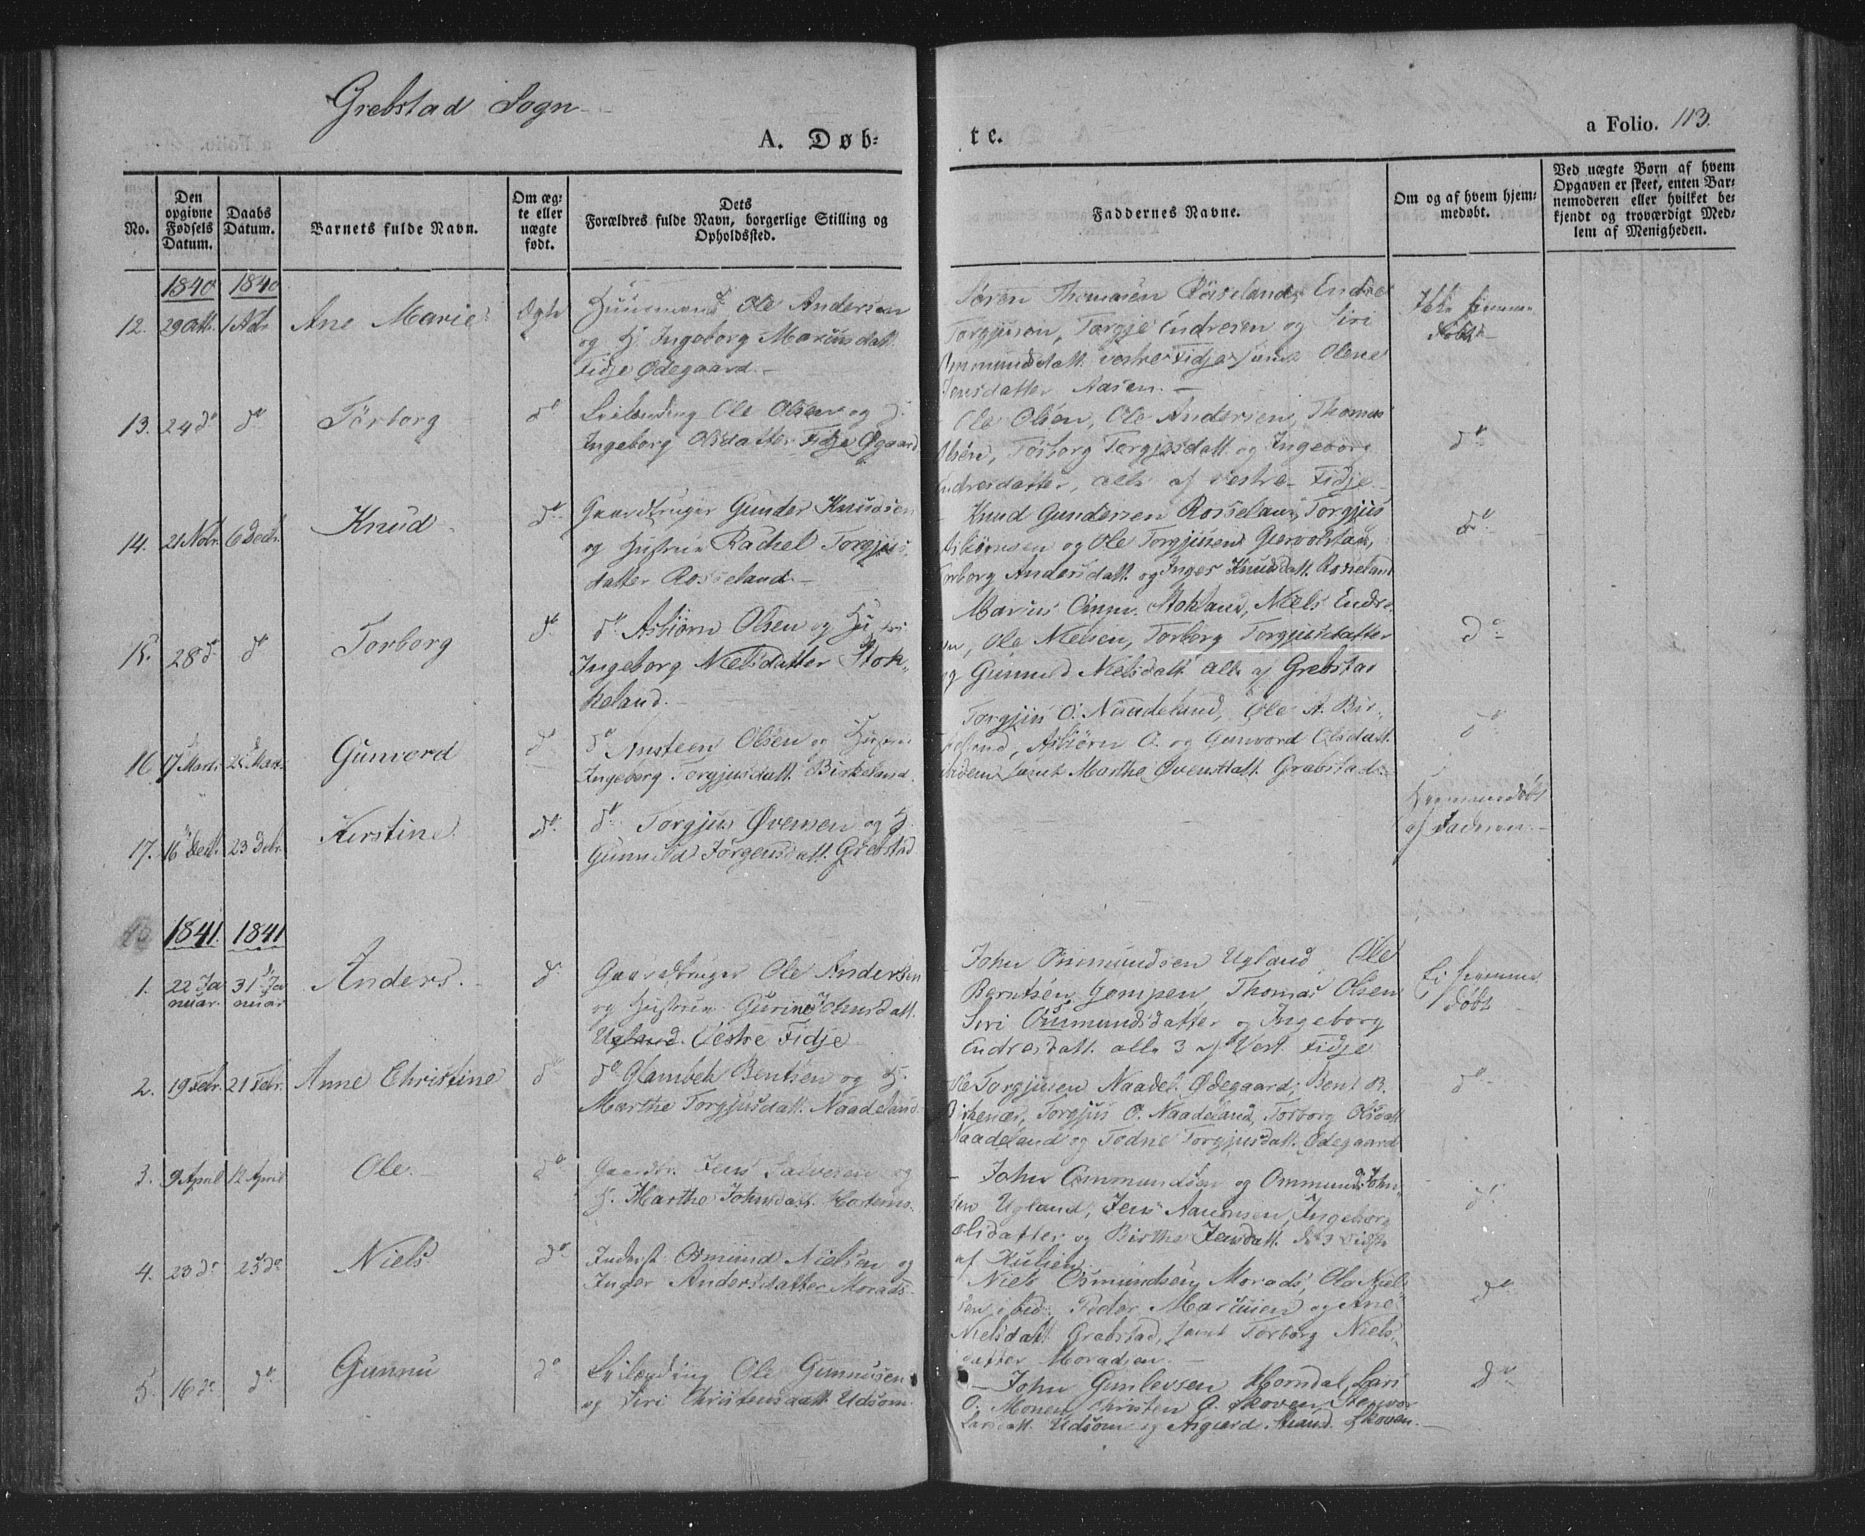 Grebstad Sogn
A. Døb-
te.
a Folio. 113.
No.
Den opgivne Fødsels Datum.
Daabs Datum.
Barnets fulde Navn.
Om æg- te eller uægte født.
Dets Forældres fulde Navn, borgerlige Stilling og Opholdssted.
Faddernes Navne.
Om og af hvem hjem- medøbt.
Ved uægte Børn af hvem Opgaven er skeet, enten Bar- nemoderen eller hvilket be- kjendt og troværdigt Med- lem af Menigheden.
1840 1840
12. 29 Octb. Ane Marie Ægte
Huusmand Ole Andersen
og H. Ingeborg Marcusdatt.
Fidje Ødegaard.
Søren Thomasen Endre
Torgjusen, Torgje Endresen og Siri
Ommundsdatt. vestre Fidje samt Olene
Jensdatter Aasen.
Ikke hjemme-
døbt
13. 24 do do Torborg do
Ole Olsen og H.
Ingeborg Olsdatter Fidje Øgaard
Ole Olsen, Ole Andersen, Thomas
Olsen, Torborg Torgjusdatt. og Ingeborg
Endresdatter, alle af vestre Fidje
do
14. 21 Nobr. 6 Decbr. Knud do
Gaardbruger Gunder Knudsen
og Hustrue Rachel Torgjus-
datter Rosseland
Knud Gundersen Rosseland, Torgjus
Asbiørnsen og Ole Torgjusen
Torborg Andersdatt. og Inger Knudsdatt. Rosseland
do
15. 28 do do Torborg do
do Asbiørn Olsen og Hustru
Ingeborg Nielsdatter Stok-
keland.
Marcus Stokland, Niels Endre-
sen, Ole Nielsen, Torborg Torgjusdatter
og Gunuld Nielsdatt. alle af Grebstad
do
16 17 25 Gunvord do
do Ansteen Olsen og Hustrue
Ingeborg Torgjusdatt. Birkeland.
Torgjus O. Naadeland, Ole A. Bir-
keland, Asbiørn O. og Gunvord Olsdatt.
ibidem samt Marthe Øvensdatt. Grebstad
do
17. 16 Decb. 23 Debr. Kirstine do
do Torgjus Øvensen og H.
Gunuld Jørgensdatt. Grebstad
Hjemmedøbt
af Faderen.
1841. 1841
1. 22 Ja- 31 Ja- Anders. do
nuar. nuar
Gaardbruger Ole Andersen
og Hustrue Gurine Johnsdatt.
Ugland. Vestre Fidje
John Ommundsen Ugland, Ole
Berntsen Gompen, Thomas Olsen
Siri Ommundsdatter og Ingeborg
Endresdatt. alle 3 af Vest. Fidje
Ei hjemme
døbt
2. 19 Febr. 21 Febr. Anne Christine do
do Glambek Bentsen og H.
Marthe Torgjusdatt. Naadeland.
Ole Torgjusen Naadel. Ødegaard, Bent B.
Birkenæs, Torgjus O. Naadeland, Torborg Olsdatt.
Naadeland og Todne Torgjusdatt. Ødegaard
do
3. 9 April 12 April Ole do
Gaardbr. Jens Salvesen og
H. Marthe Johnsdatt.
John Ommundsen og Ommund John-
sen Ugland, Jens Aanonsen, Ingeborg
Olsdatter og Birthe Jensdatt.
af
do
4. 23 do 25 do Niels do
Inderst Osmund Nielsen og
Inger Andersdatter Morads-
Niels Osmundsen Morads, Ole Niel-
sen ibid. Peder Marcusen og Ane
Nielsdatt. Grebstad, samt Torborg Niels-
datter Moradsen.
do
5. 16 do do Gunnu do
Ole Gunnusen
og Siri Christensdatt. Udsom.
John Gunlevsen Horndal, Lars
O. Monen, Christen O. Skoven, Stenvor
Larsdatt. Udsom og Skoven.
do